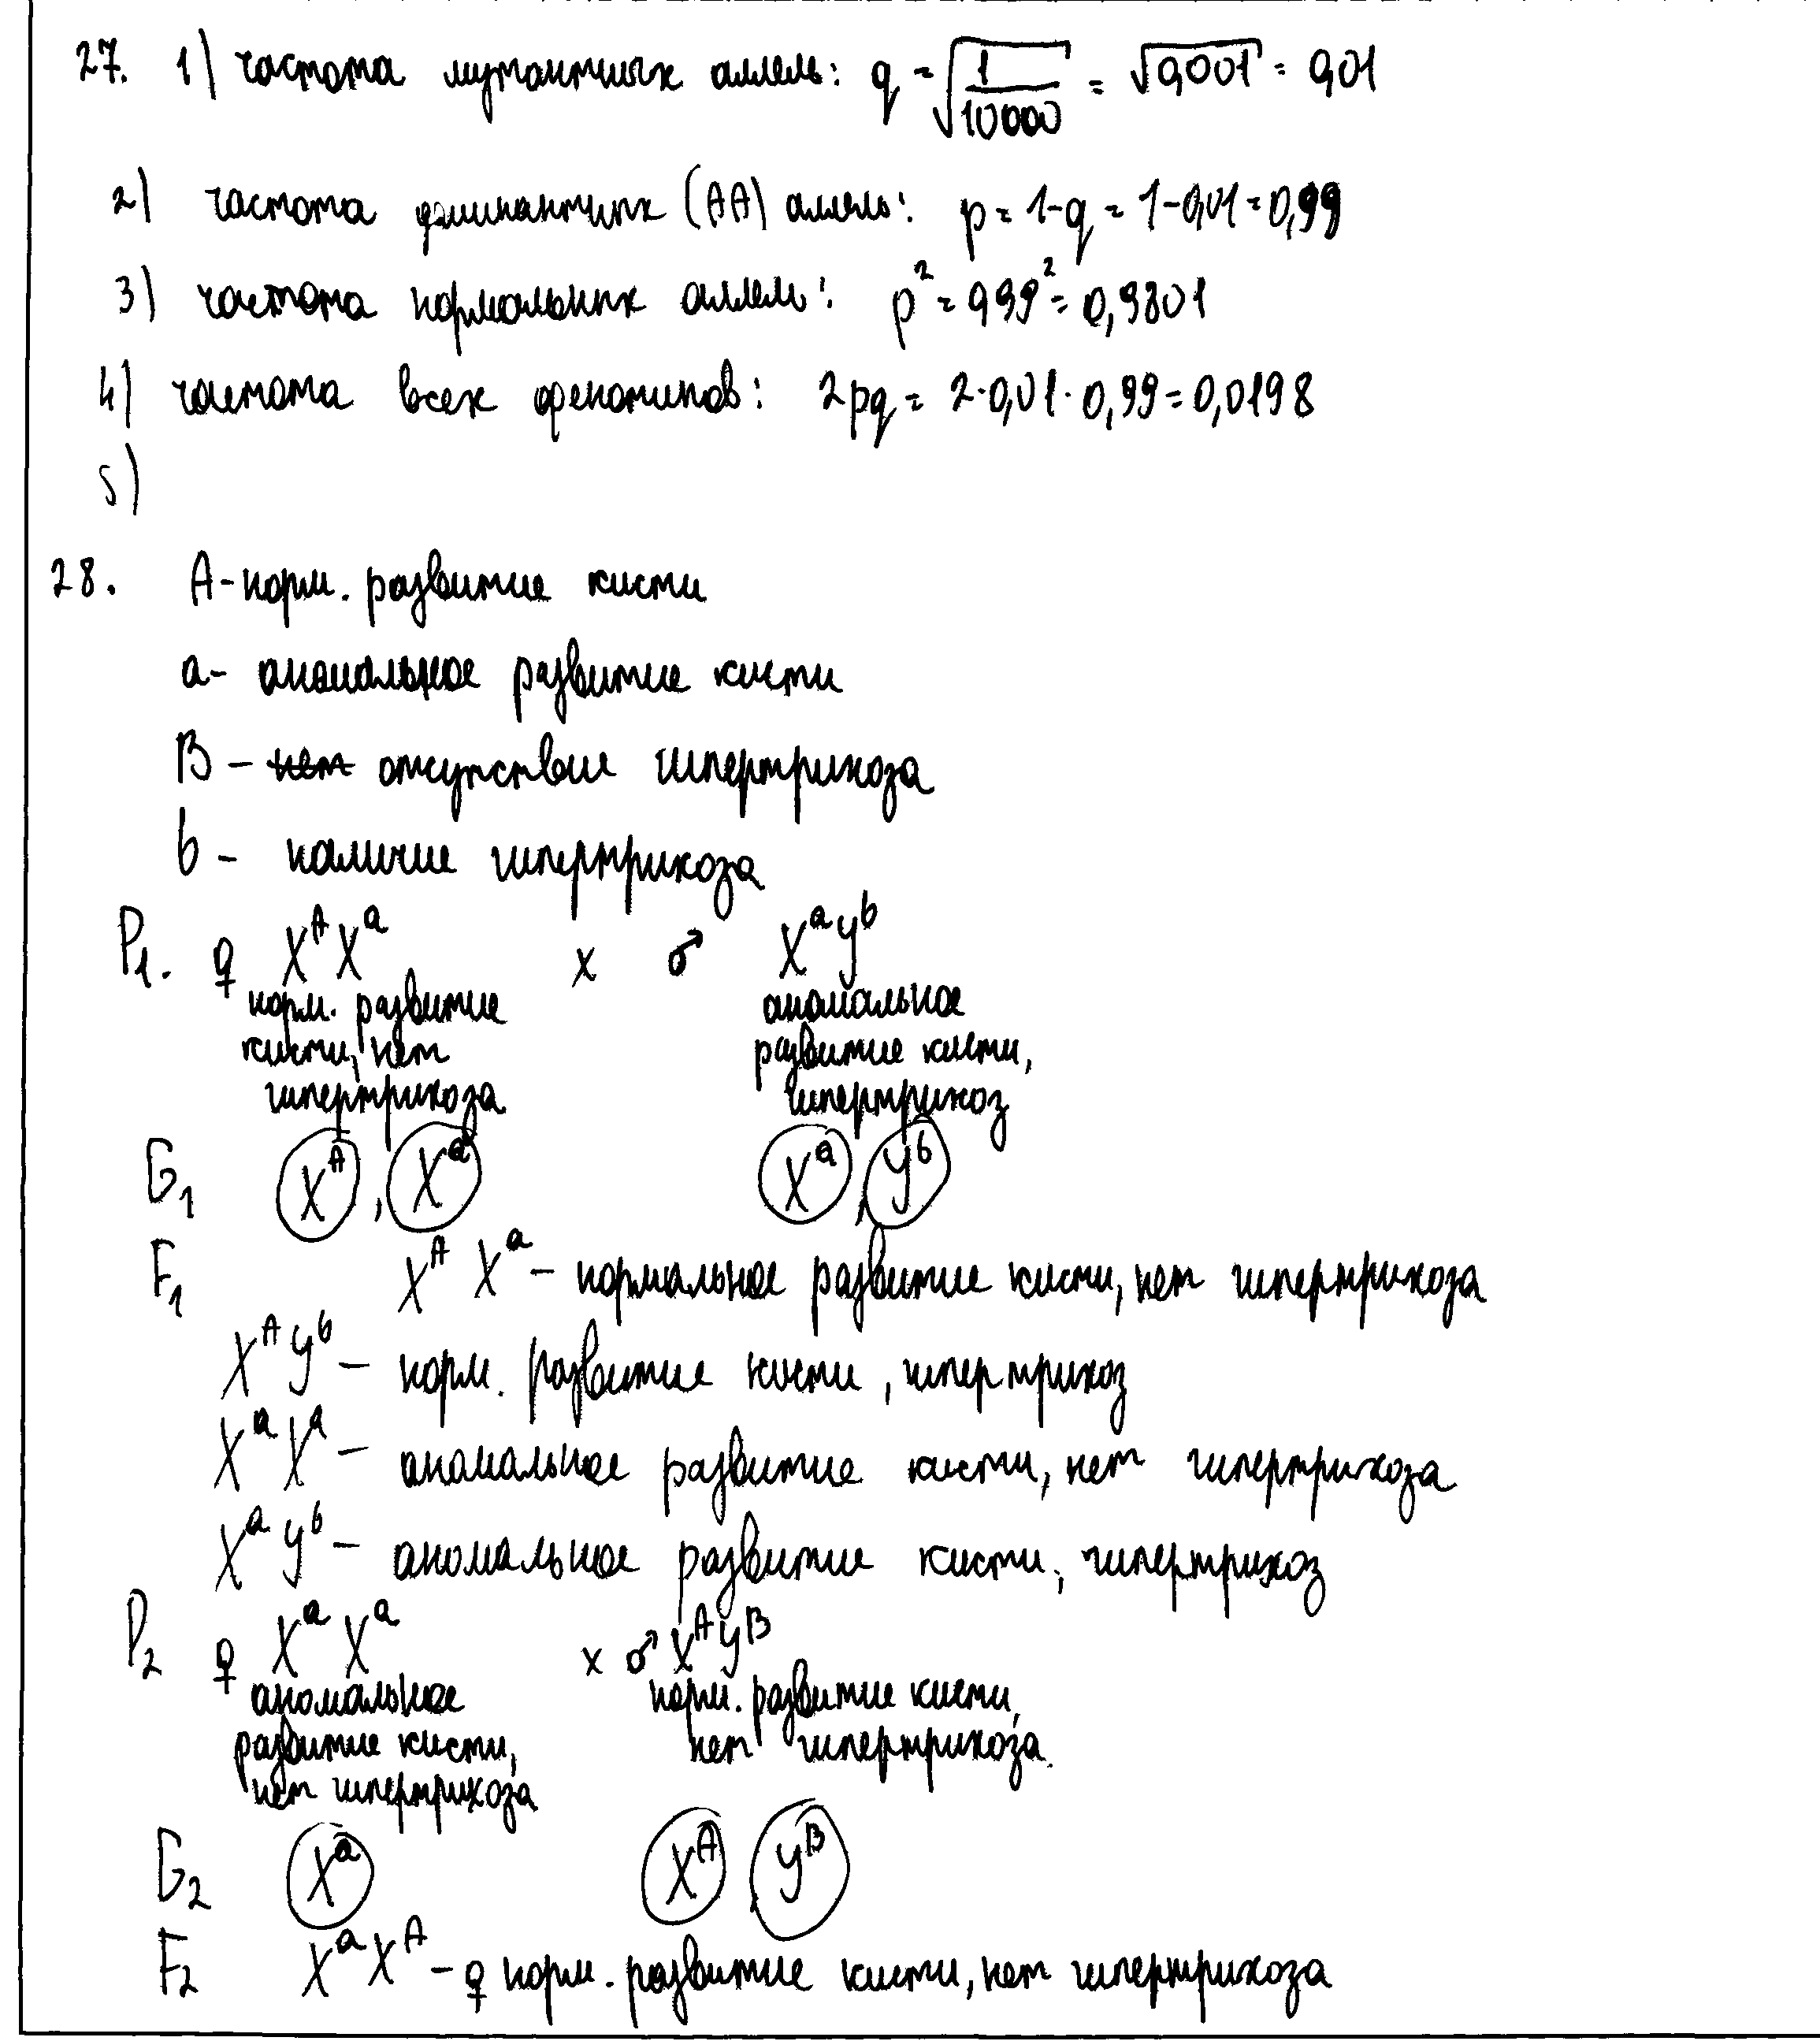 27. 1) частота мутантных аллель: q = √1/10000 = √0,0001 = 0,01
2) частота доминантных (АА) аллель: p = 1-q = 1-0,01 = 0,99
3) частота нормальных аллель: p² = 0,99² = 0,9801
4) частота всех фенотипов: 2pq = 2·0,01·0,99 = 0,0198
5)
28. А - норм. развитие кисти
а - аномальное развитие кисти
В - нет отсутствие гипертрихоза
b - наличие гипертрихоза
P₁. ♀ XᴬXᵃ x ♂ XᵃYᵇ
норм. развитие аномальное
кисти, нет развитие кисти,
гипертрихоза гипертрихоз
G₁ Xᴬ, Xᵃ Xᵃ, Yᵇ
F₁ XᴬXᵃ - нормальное развитие кисти, нет гипертрихоза
XᴬYᵇ - норм. развитие кисти, гипертрихоз
XᵃXᵃ - аномальное развитие кисти, нет гипертрихоза
XᵃYᵇ - аномальное развитие кисти, гипертрихоз
P₂ ♀ XᵃXᵃ x ♂ XᴬYᴮ
аномальное норм. развитие кисти,
развитие кисти, нет гипертрихоза.
нет гипертрихоза
G₂ Xᵃ Xᴬ, Yᴮ
F₂ XᵃXᴬ - ♀ норм. развитие кисти, нет гипертрихоза